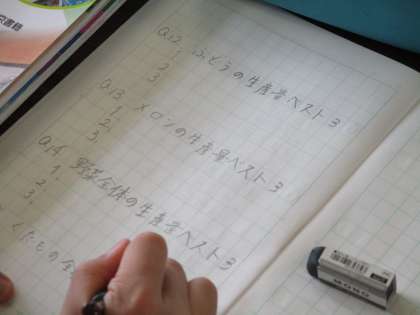 Q12 ぶどうの生産量ベスト3
1.
2.
3.
Q13 メロンの生産量ベスト3
1.
2.
3.
Q14 野菜全体の生産量ベスト3
1.
2.
3.
くだもの全
MONO